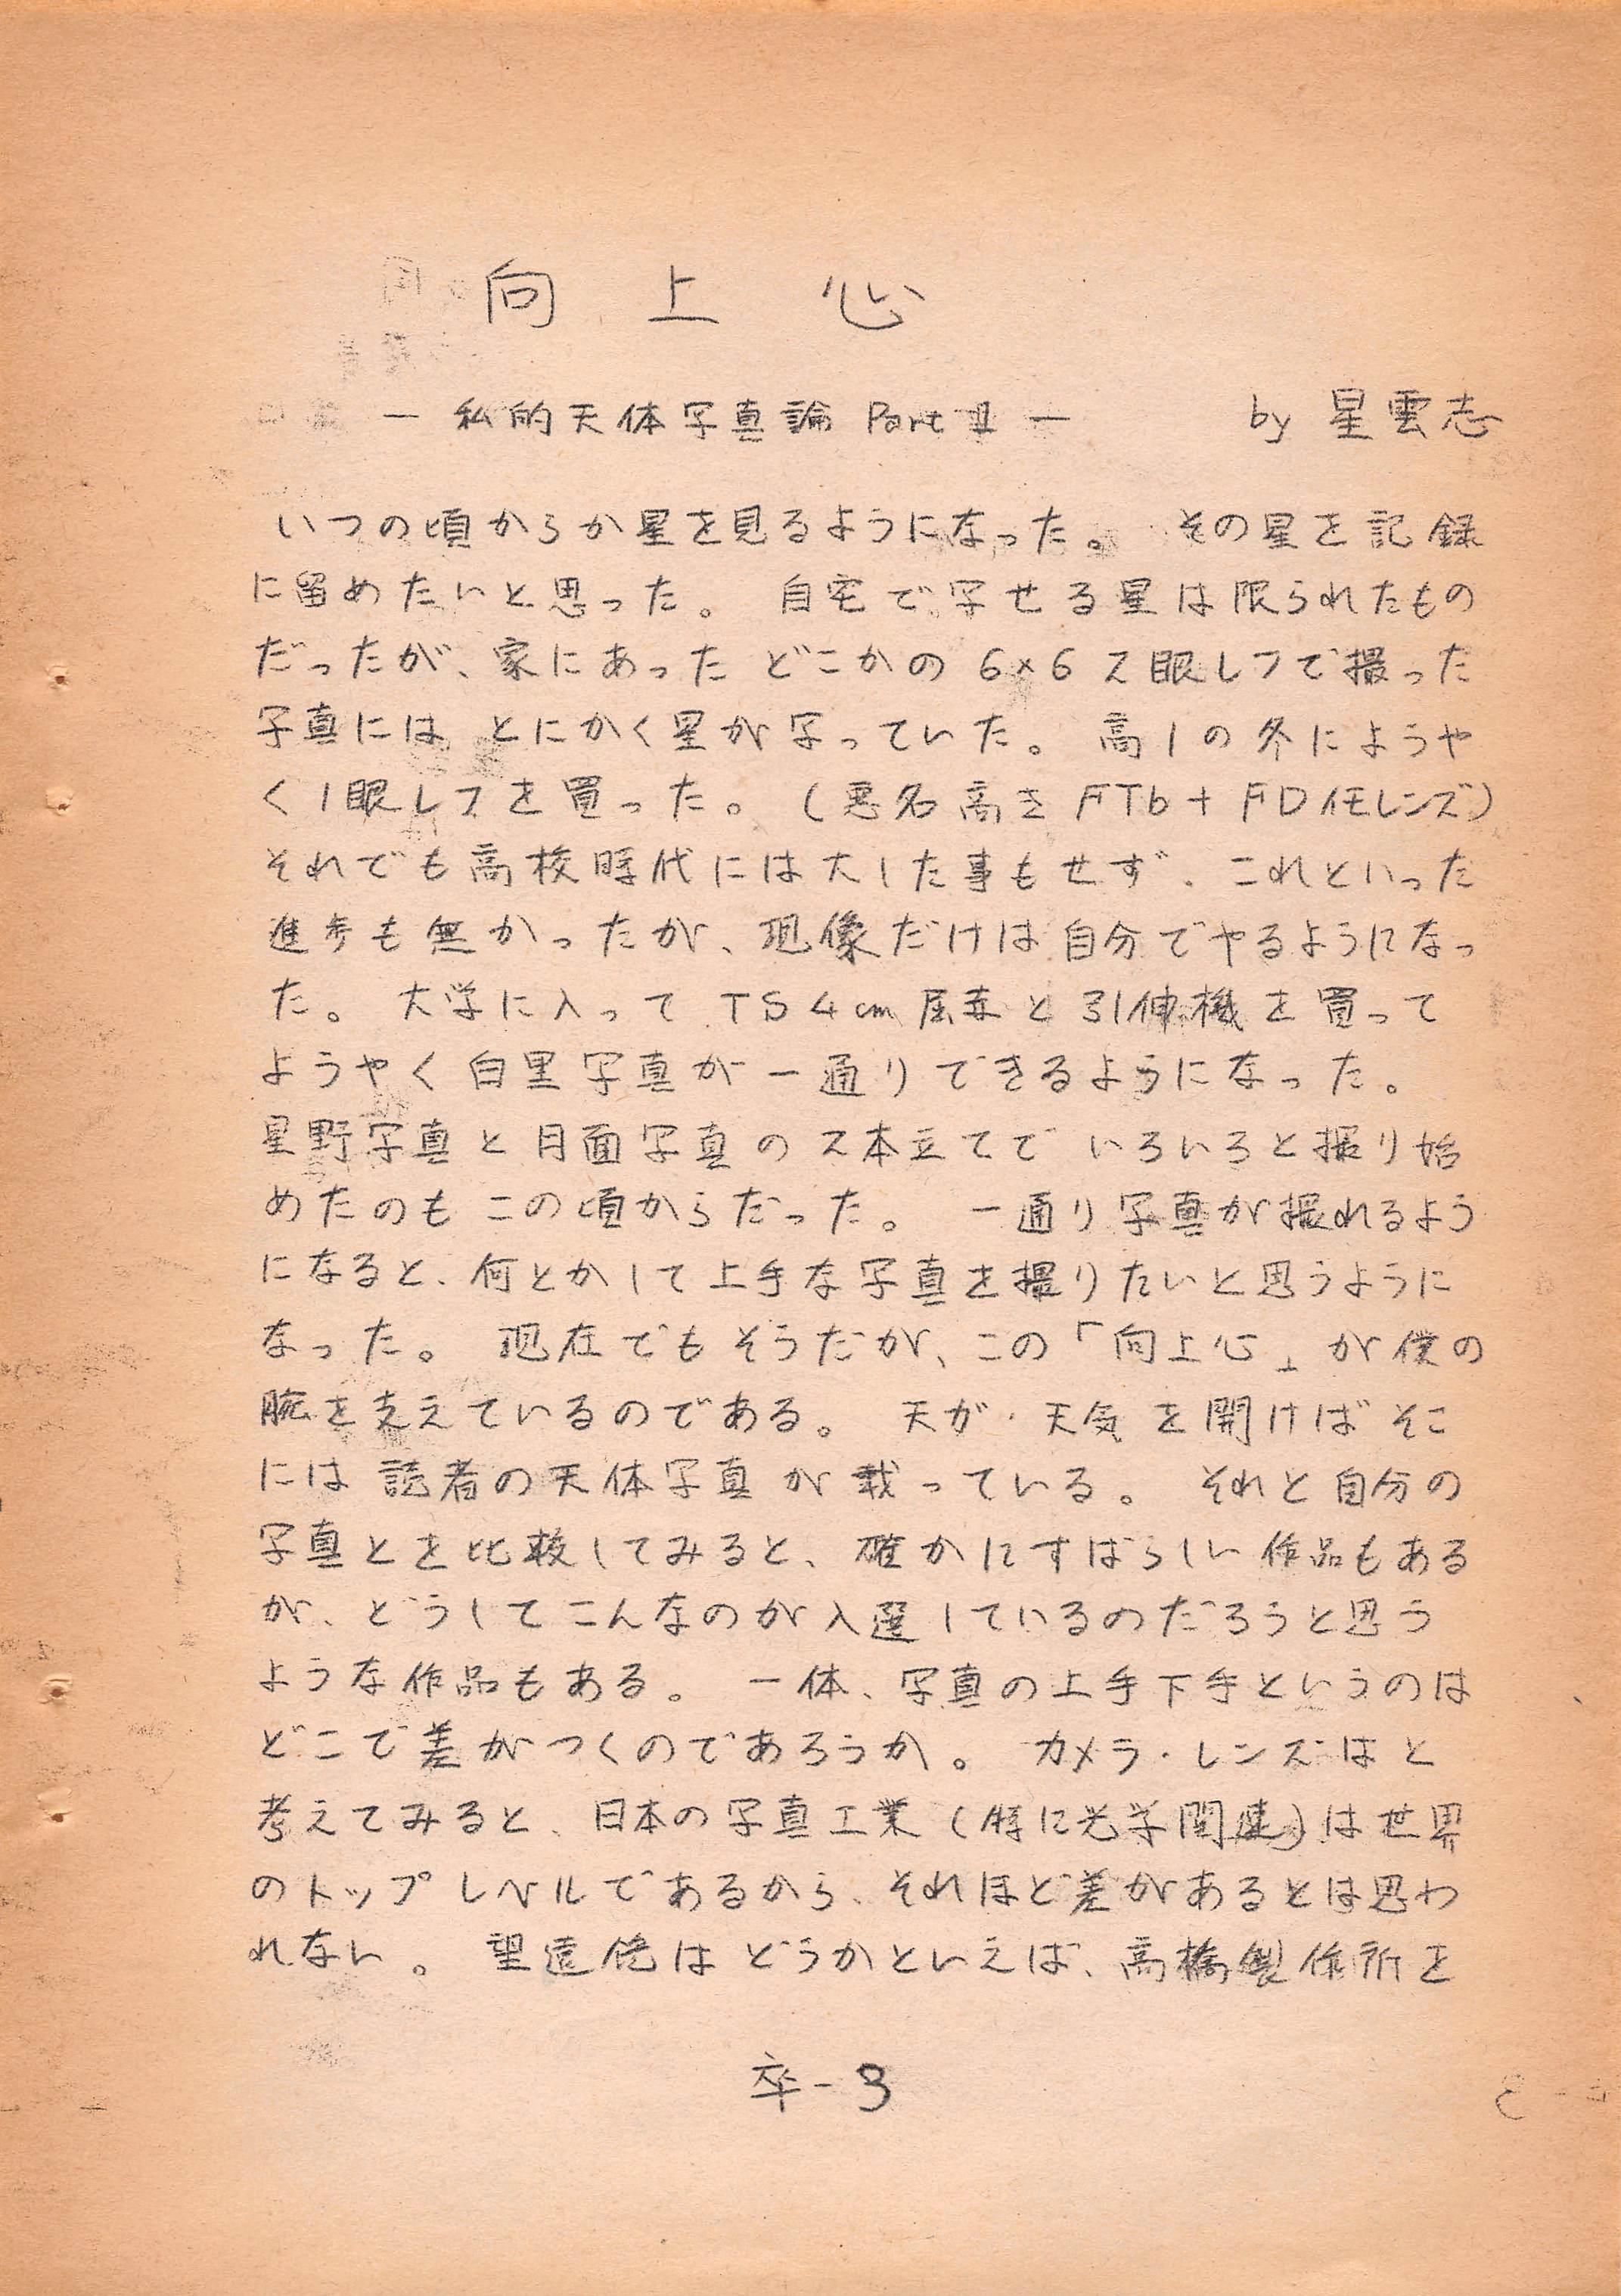 向上心
― 私的天体写真論 Part Ⅱ ― by 星雲志
いつの頃からか星を見るようになった。 その星を記録
に留めたいと思った。 自宅で写せる星は限られたもの
だったが、家にあった どこかの 6×6 2眼レフで撮った
写真には とにかく星が写っていた。 高1の冬にようや
く1眼レフを買った。 (悪名高き FTb + FD レンズ)
それでも高校時代には大した事もせず、これといった
進歩も無かったが、現像だけは自分でやるようになっ
た。 大学に入って TS 4cm 屈赤と引伸機を買って
ようやく白黒写真が一通りできるようになった。
星野写真と月面写真の2本立てで いろいろと撮り始
めたのも この頃からだった。 一通り写真が撮れるよう
になると、何とかして上手な写真を撮りたいと思うように
なった。 現在でもそうだが、この「向上心」が僕の
腕を支えているのである。 天ガ・天気を開けばそこ
には 読者の天体写真が載っている。 それと自分の
写真とを比較してみると、確かにすばらしい作品もある
が、どうしてこんなのが入選しているのだろうと思う
ような作品もある。 一体、写真の上手下手というのは
どこで差がつくのであろうか。 カメラ・レンズはと
考えてみると、日本の写真工業(特に光学関連)は世界
のトップレベルであるから、それほど差があるとは思わ
れない。 望遠鏡はどうかといえば、高橋製作所を
卒-3